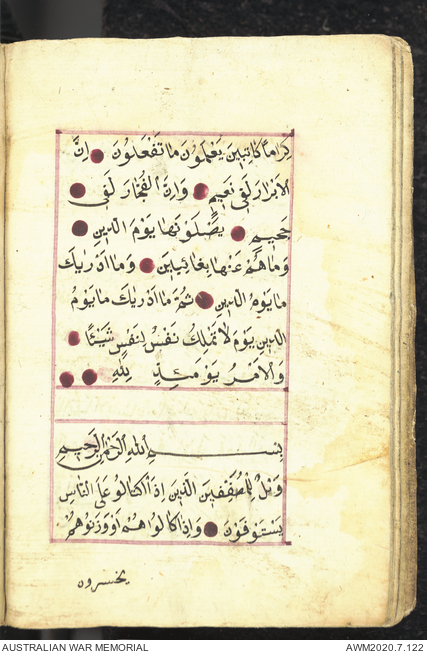 كِرَامًا كَاتِبِينَ يَعْلَمُونَ مَا تَفْعَلُونَ اِنَّ
الْاَبْرَارَ لَفِي نَعِيمٍ وَاِنَّ الْفُجَّارَ لَفِي
جَحِيمٍ يَصْلَوْنَهَا يَوْمَ الدِّينِ
وَمَا هُمْ عَنْهَا بِغَائِبِينَ وَمَا اَدْرٰيكَ
مَا يَوْمُ الدِّينِ ثُمَّ مَا اَدْرٰيكَ مَا يَوْمُ
الدِّينِ يَوْمَ لَا تَمْلِكُ نَفْسٌ لِنَفْسٍ شَيْئًا
وَالْاَمْرُ يَوْمَئِذٍ لِلّٰهِ
بِسْمِ اللّٰهِ الرَّحْمٰنِ الرَّحِيمِ
وَيْلٌ لِلْمُطَفِّفِينَ الَّذِينَ اِذَا اكْتَالُوا عَلَى النَّاسِ
يَسْتَوْفُونَ وَاِذَا كَالُوا هُمْ اَوْ وَزَنُوهُمْ
يخسرون
AUSTRALIAN WAR MEMORIAL
AWM2020.7.122